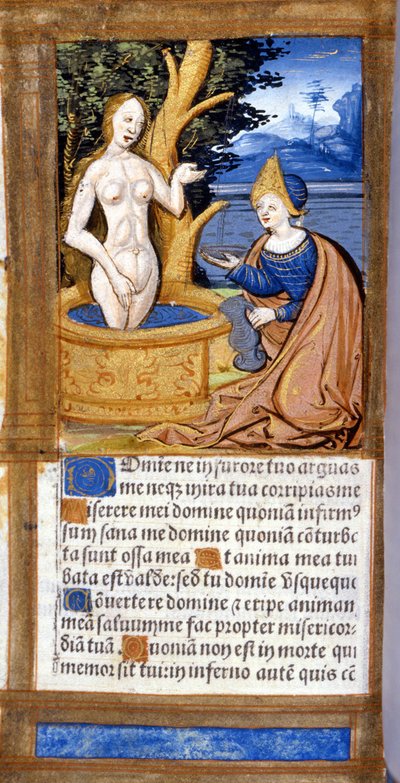 Domīe ne in furore tuo arguas
me neqꝫ in ira tua corripias me
Miserere mei domine quoniā infirmꝰ
sum sana me domine quoniā cōturba
ta sunt ossa mea Et anima mea tur
bata est valde: sed tu domīe vsquequo
Cōuertere domine ⁊ eripe animan
meā saluum me fac propter misericor
diā tuā Quoniā non est in morte qui
memor sit tui: in inferno autē quis cō